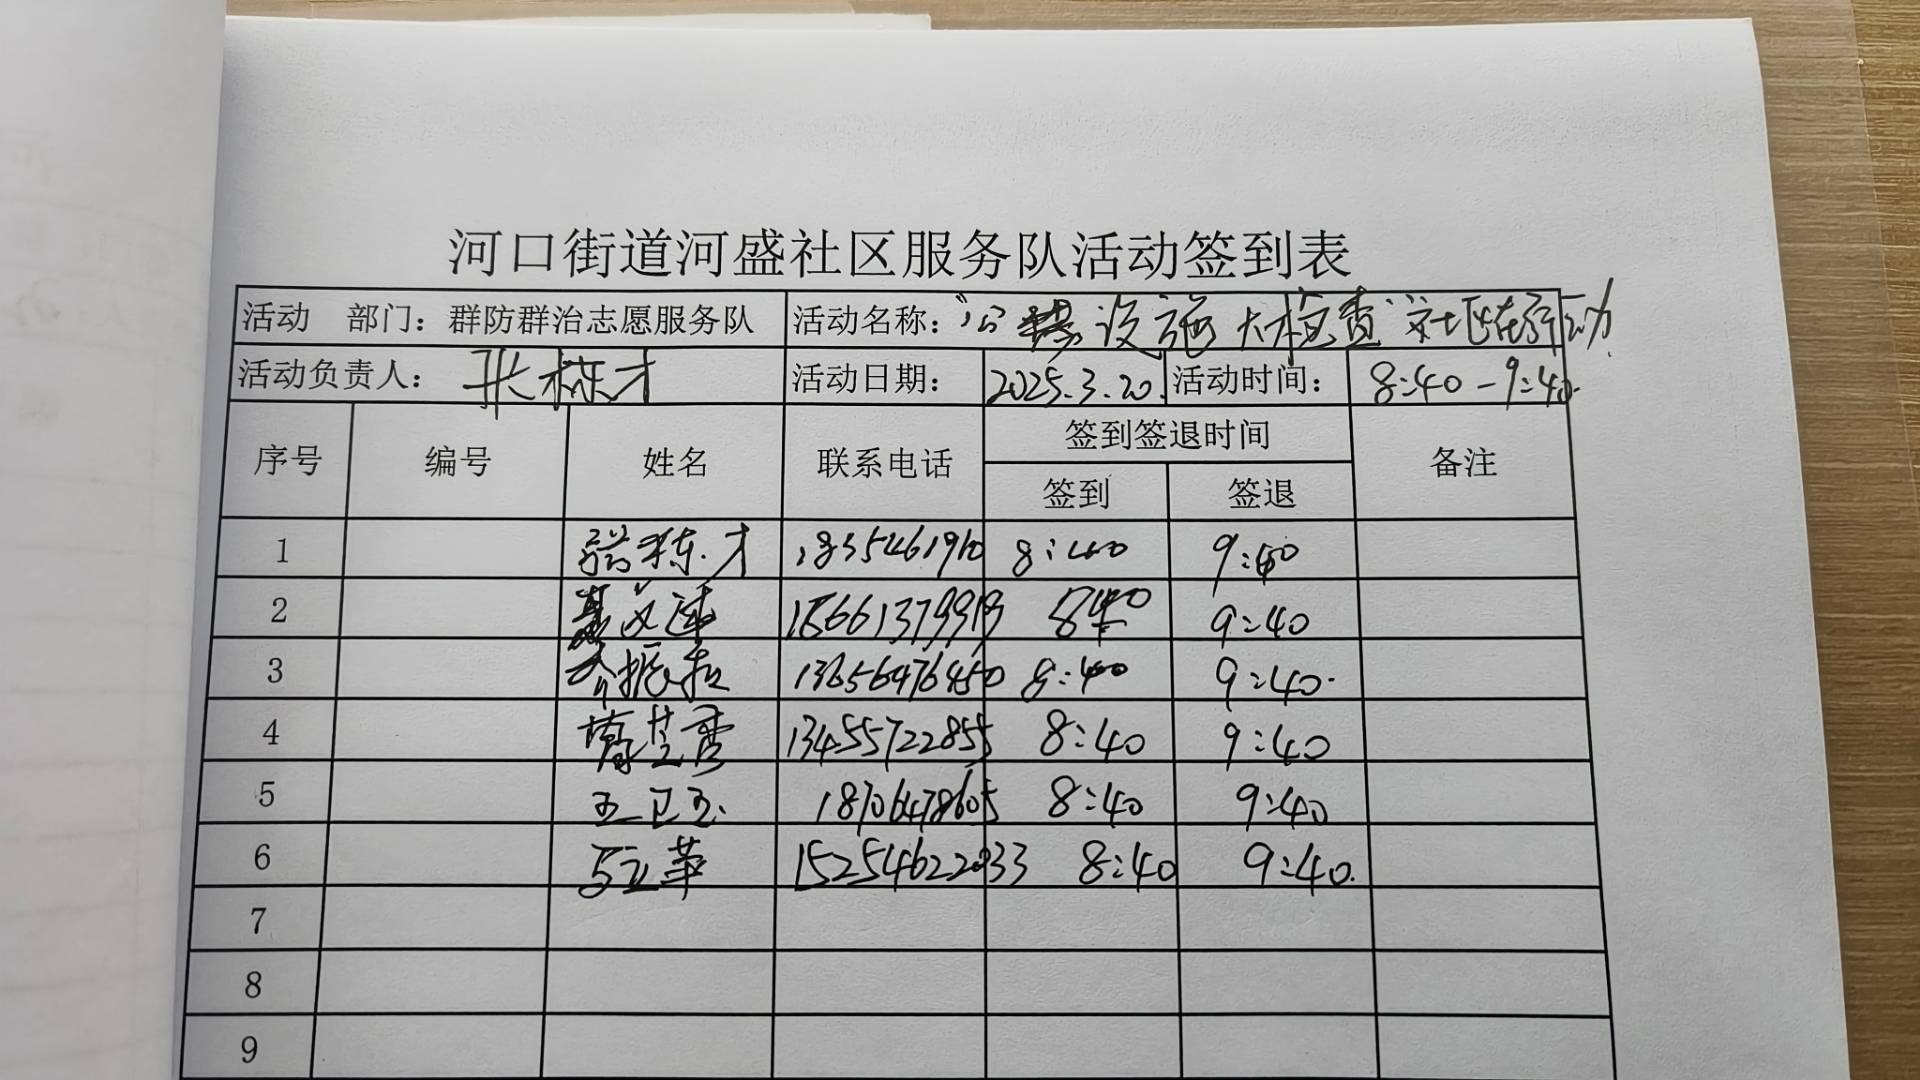 河口街道河盛社区服务队活动签到表
活动 部门：群防群治志愿服务队 活动名称：“公共设施大检查”社区在行动
活动负责人：张栋才 活动日期： 2025.3.20. 活动时间： 8:40-9:40.
序号 编号 姓名 联系电话 签到签退时间 备注
签到 签退
1 张栋才 1835461910 8:40 9:40
2 15661379919 8:40 9:40
3 13656476450 8:40 9:40.
4 13455722855 8:40 9:40
5 王卫玉 18706478605 8:40 9:40
6 马立革 15254622033 8:40 9:40.
7
8
9